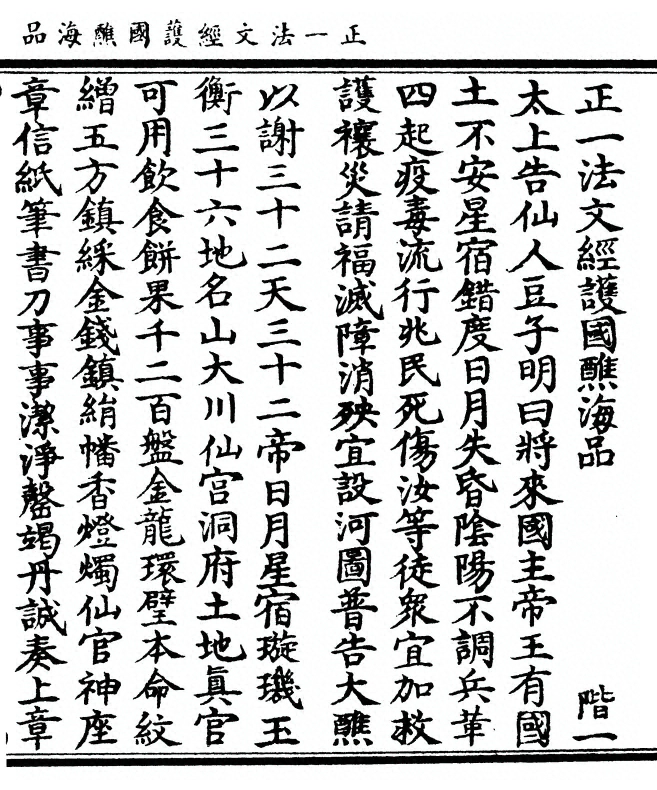 正一法文經護國醮海品
正一法文經護國醮海品 階一
太上告仙人豆子明曰將來國主帝王有國
土不安星宿錯度日月失昏陰陽不調兵革
四起疫毒流行兆民死傷汝等徒衆宜加救
護禳災請福滅障消殃宜設河圖普告大醮
以謝三十二天三十二帝日月星宿璇璣玉
衡三十六地名山大川仙宫洞府土地眞官
可用飲食餅果千二百盤金龍環璧本命紋
繒五方鎮綵金錢鎮絹幡香燈燭仙官神座
章信紙筆書刀事事潔淨罄竭丹誠奏上章